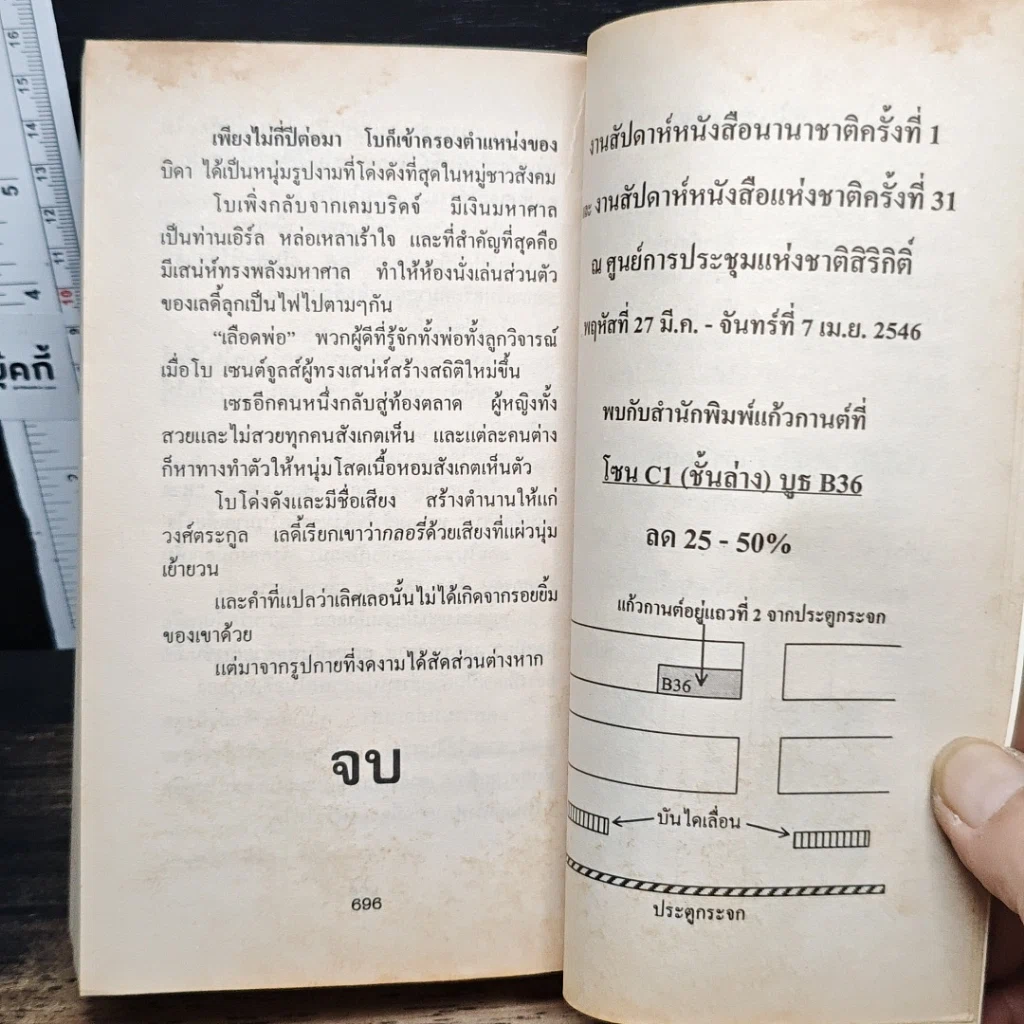 เพียงไม่กี่ปีต่อมา โบก็เข้าครองตำแหน่งของ
บิดา ได้เป็นหนุ่มรูปงามที่โด่งดังที่สุดในหมู่ชาวสังคม
โบเพิ่งกลับจากเคมบริดจ์ มีเงินมหาศาล
เป็นท่านเอิร์ล หล่อเหลาเร้าใจ และที่สำคัญที่สุดคือ
มีเสน่ห์ทรงพลังมหาศาล ทำให้ห้องนั่งเล่นส่วนตัว
ของเลดี้ลุกเป็นไฟไปตามๆกัน
“เลือดพ่อ” พวกผู้ดีที่รู้จักทั้งพ่อทั้งลูกวิจารณ์
เมื่อโบ เซนต์จูลส์ผู้ทรงเสน่ห์สร้างสถิติใหม่ขึ้น
เซธอีกคนหนึ่งกลับสู่ท้องตลาด ผู้หญิงทั้ง
สวยและไม่สวยทุกคนสังเกตเห็น และแต่ละคนต่าง
ก็หาทางทำตัวให้หนุ่มโสดเนื้อหอมสังเกตเห็นตัว
โบโด่งดังและมีชื่อเสียง สร้างตำนานให้แก่
วงศ์ตระกูล เลดี้เรียกเขาว่ากลอรี่ด้วยเสียงที่แผ่วนุ่ม
เย้ายวน
และคำที่แปลว่าเลิศเลอนั้นไม่ได้เกิดจากรอยยิ้ม
ของเขาด้วย
แต่มาจากรูปกายที่งดงามได้สัดส่วนต่างหาก
จบ
696
งานสัปดาห์หนังสือนานาชาติครั้งที่ 1
และ งานสัปดาห์หนังสือแห่งชาติครั้งที่ 31
ณ ศูนย์การประชุมแห่งชาติสิริกิติ์
พฤหัสที่ 27 มี.ค. - จันทร์ที่ 7 เม.ย. 2546
พบกับสำนักพิมพ์แก้วกานต์ที่
โซน C1 (ชั้นล่าง) บูธ B36
ลด 25 - 50%
แก้วกานต์อยู่แถวที่ 2 จากประตูกระจก
B36
บันไดเลื่อน
ประตูกระจก
16
15
14
13
12
11
10
5
4